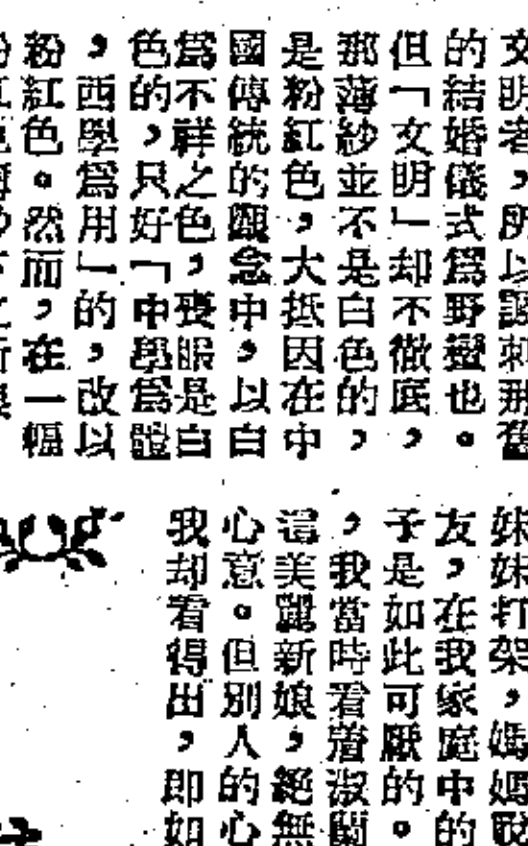 女明者，所以譏刺那舊
的結婚儀式爲野蠻也。
但「文明」却不徹底，
那薄紗並不是白色的，
是粉紅色，大抵因在中
國傳統的觀念中，以白
爲不祥之色，喪服是白
色的，只好「中學爲體
，西學爲用」的，改以
粉紅色。然而，在一幅
妹妹打架，媽媽說
友，在我家庭中的
子是如此可厭的。
，我當時看着淑蘭
這美麗新娘，絕無
心意。但別人的心
我却看得出，即如